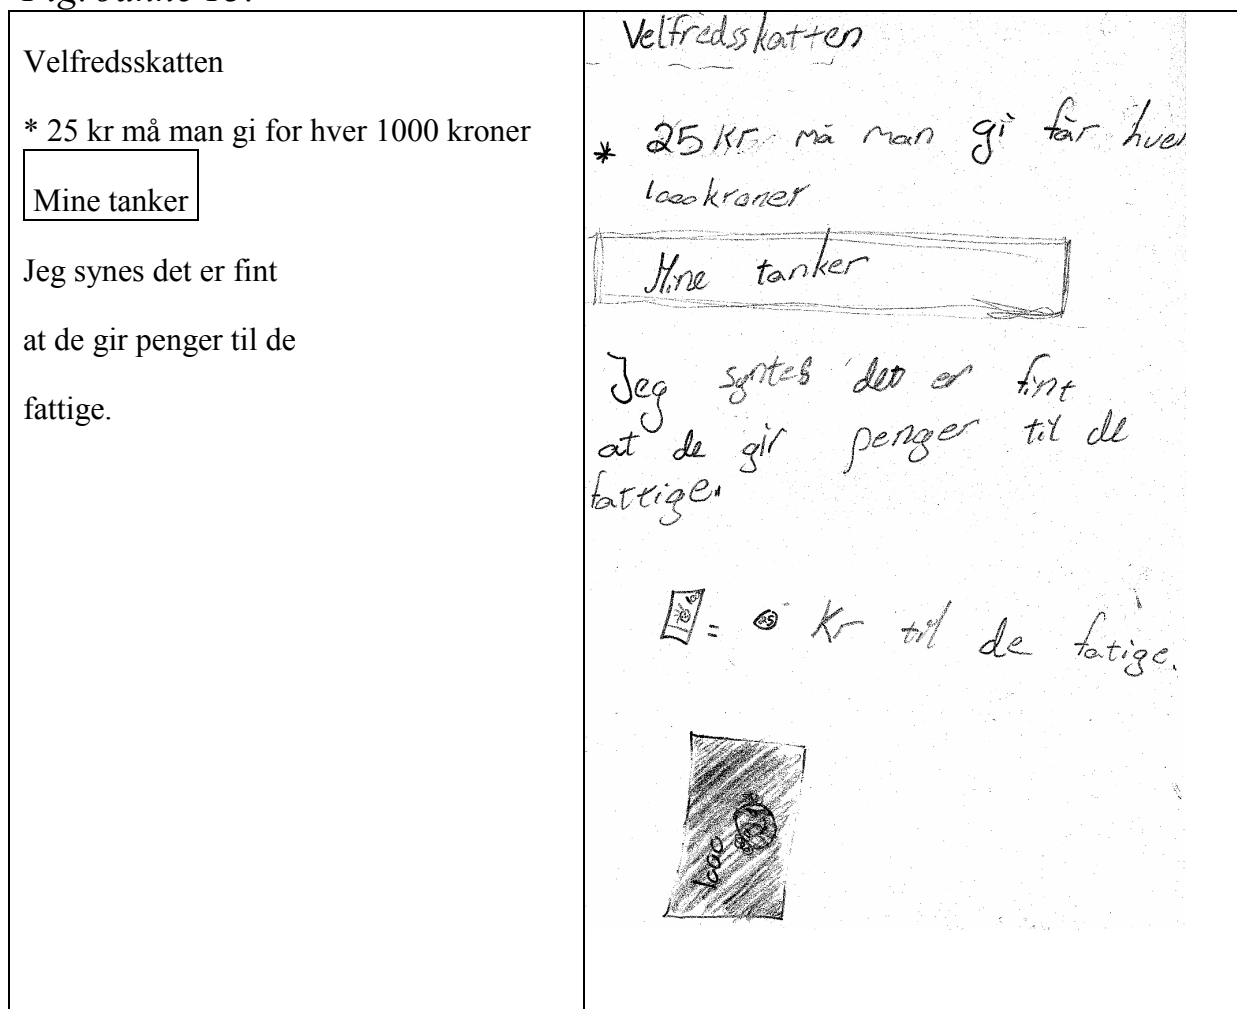 Velfredsskatten
* 25 kr må man gi for hver 1000 kroner
Mine tanker
Jeg synes det er fint
at de gir penger til de
fattige.
Velfredsskatten
* 25 kr må man gi får hver
1000 kroner
Mine tanker
Jeg syntes det er fint
at de gir penger til de
fattige.
= 25 kr til de fatige.
1000